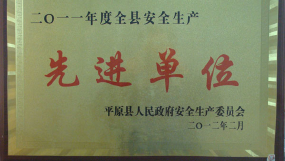 二〇一一年度全县安全生产
先进单位
平原县人民政府安全生产委员会
二〇一二年二月